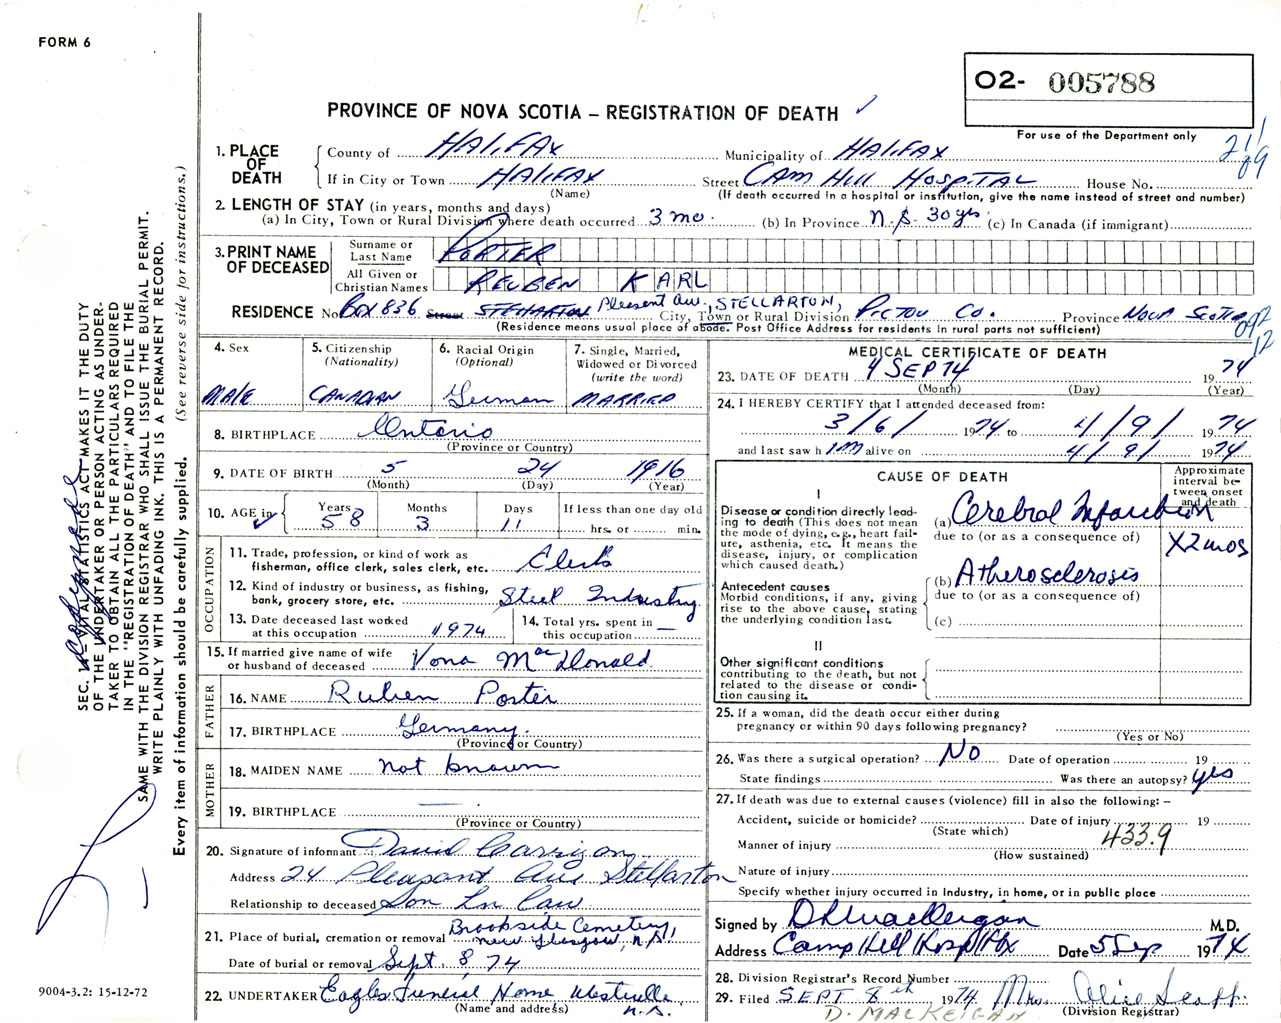 FORM 6
02- 005788
PROVINCE OF NOVA SCOTIA – REGISTRATION OF DEATH ✓
For use of the Department only
1. PLACE OF DEATH
County of HALIFAX Municipality of HALIFAX
If in City or Town HALIFAX Street CAM HILL HOSPITAL House No.
(Name) (If death occurred in a hospital or institution, give the name instead of street and number)
2. LENGTH OF STAY (in years, months and days)
(a) In City, Town or Rural Division where death occurred 3 mo. (b) In Province N.S. 30 yrs. (c) In Canada (if immigrant)
3. PRINT NAME OF DECEASED
Surname or Last Name PORTER
All Given or Christian Names REUBEN KARL
RESIDENCE No. Box 836 Street STELLARTON Pleasent Ave., STELLARTON, City, Town or Rural Division PICTOU Co. Province NOVA SCOTIA
(Residence means usual place of abode. Post Office Address for residents in rural parts not sufficient)
4. Sex
MALE
5. Citizenship (Nationality)
CANADIAN
6. Racial Origin (Optional)
German
7. Single, Married, Widowed or Divorced (write the word)
MARRIED
8. BIRTHPLACE Ontario
(Province or Country)
9. DATE OF BIRTH 5 24 1916
(Month) (Day) (Year)
10. AGE in ✓ Years 58 Months 3 Days 11 If less than one day old
hrs. or min.
OCCUPATION
11. Trade, profession, or kind of work as fisherman, office clerk, sales clerk, etc. Clerk
12. Kind of industry or business, as fishing, bank, grocery store, etc. Steel Industry
13. Date deceased last worked at this occupation 1974
14. Total yrs. spent in this occupation —
15. If married give name of wife or husband of deceased Vona MacDonald
FATHER
16. NAME Ruben Porter
17. BIRTHPLACE Germany.
(Province or Country)
MOTHER
18. MAIDEN NAME not known
19. BIRTHPLACE —
(Province or Country)
20. Signature of informant David Carrigan
Address 24 Pleasant Ave Stellarton
Relationship to deceased Son In Law
21. Place of burial, cremation or removal Brookside Cemetery, New Glasgow, N.S.
Date of burial or removal Sept. 8, 74
22. UNDERTAKER Eagles Funeral Home Westville, N.S.
(Name and address)
MEDICAL CERTIFICATE OF DEATH
23. DATE OF DEATH 4 SEP 74 19 74
(Month) (Day) (Year)
24. I HEREBY CERTIFY that I attended deceased from:
3/6/ 1974 to 4/9/ 1974
and last saw h im alive on 4/9/ 1974
CAUSE OF DEATH
Approximate interval between onset and death
I
Disease or condition directly leading to death (This does not mean the mode of dying, e.g., heart failure, asthenia, etc. It means the disease, injury, or complication which caused death.)
(a) Cerebral Infarction
due to (or as a consequence of)
X2 mos
Antecedent causes
Morbid conditions, if any, giving rise to the above cause, stating the underlying condition last.
(b) Atherosclerosis
due to (or as a consequence of)
(c)
II
Other significant conditions contributing to the death, but not related to the disease or condition causing it.
25. If a woman, did the death occur either during pregnancy or within 90 days following pregnancy?
(Yes or No)
26. Was there a surgical operation? No Date of operation 19
State findings Was there an autopsy? yes
27. If death was due to external causes (violence) fill in also the following: –
Accident, suicide or homicide? Date of injury 19
(State which)
433.9
Manner of injury
(How sustained)
Nature of injury
Specify whether injury occurred in industry, in home, or in public place
Signed by D MacKeigan M.D.
Address Camp Hill Hosp Hfx Date 5 Sep 1974
28. Division Registrar's Record Number
29. Filed SEPT 8th 1974 Mrs. Alice Scott
(Division Registrar)
D. MACKEIGAN
SEC. 14 – VITAL STATISTICS ACT MAKES IT THE DUTY
OF THE UNDERTAKER OR PERSON ACTING AS UNDER-
TAKER TO OBTAIN ALL THE PARTICULARS REQUIRED
IN THE "REGISTRATION OF DEATH" AND TO FILE THE
SAME WITH THE DIVISION REGISTRAR WHO SHALL ISSUE THE BURIAL PERMIT.
WRITE PLAINLY WITH UNFADING INK. THIS IS A PERMANENT RECORD.
Every item of information should be carefully supplied. (See reverse side for instructions.)
9004-3.2: 15-12-72